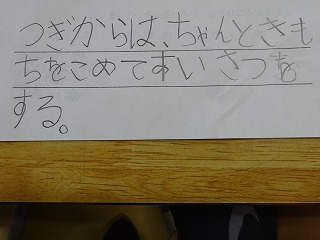 つぎからは、ちゃんときも
ちをこめてすいさつを
する。